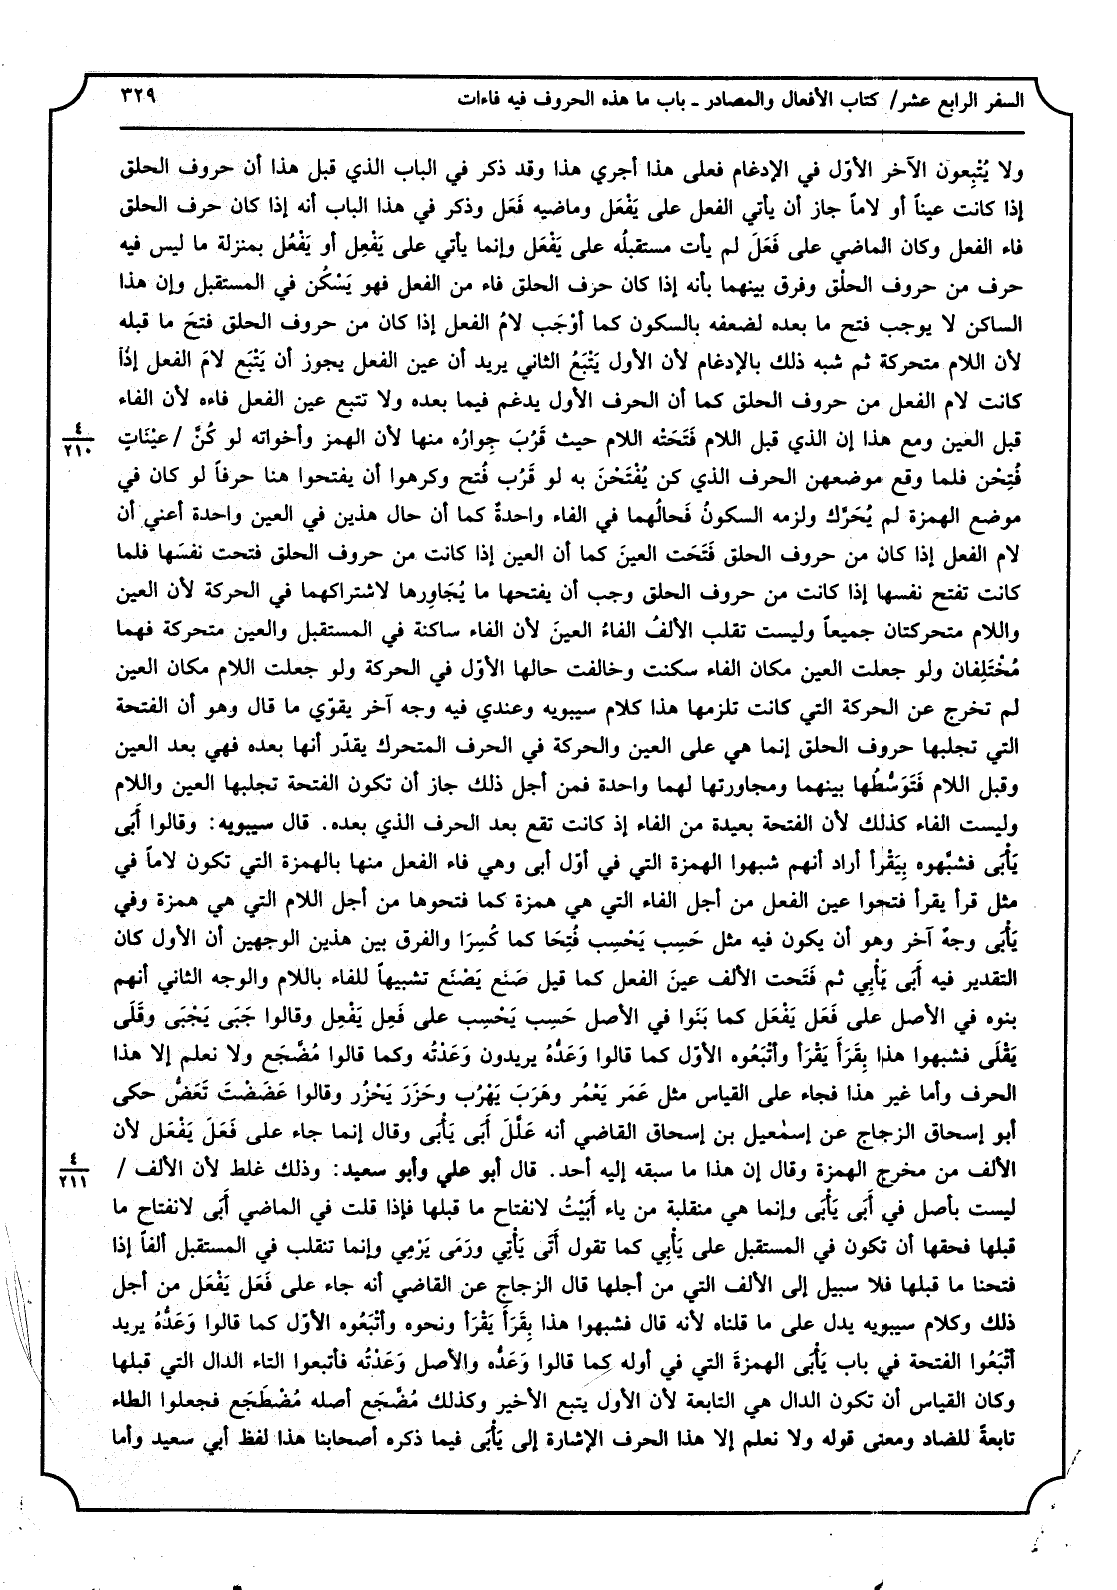 السفر الرابع عشر/ كتاب الأفعال والمصادر ـ باب ما هذه الحروف فيه فاءات ٣٢٩
ولا يُتْبِعون الآخر الأوّل في الإدغام فعلى هذا أجري هذا وقد ذكر في الباب الذي قبل هذا أن حروف الحلق
إذا كانت عيناً أو لاماً جاز أن يأتي الفعل على يَفْعَل وماضيه فَعَل وذكر في هذا الباب أنه إذا كان حرف الحلق
فاء الفعل وكان الماضي على فَعَلَ لم يأت مستقبلُه على يَفْعَل وإنما يأتي على يَفْعِل أو يَفْعُل بمنزلة ما ليس فيه
حرف من حروف الحلْق وفرق بينهما بأنه إذا كان حرف الحلق فاء من الفعل فهو يَسْكُن في المستقبل وإن هذا
الساكن لا يوجب فتح ما بعده لضعفه بالسكون كما أوْجَب لامُ الفعل إذا كان من حروف الحلق فتحَ ما قبله
لأن اللام متحركة ثم شبه ذلك بالإدغام لأن الأول يَتْبَعُ الثاني يريد أن عين الفعل يجوز أن يَتْبَع لامَ الفعل إذا
كانت لام الفعل من حروف الحلق كما أن الحرف الأول يدغم فيما بعده ولا تتبع عين الفعل فاءه لأن الفاء
قبل العين ومع هذا إن الذي قبل اللام فَتَحَتْه اللام حيث قَرُبَ جِوارُه منها لأن الهمز وأخواته لو كُنَّ /عيْنَاتٍ
٤
٢١٠
فُتِحْن فلما وقع موضعهن الحرف الذي كن يُفْتَحْنَ به لو قَرُب فُتح وكرهوا أن يفتحوا هنا حرفاً لو كان في
موضع الهمزة لم يُحَرَّك ولزمه السكونُ فَحالُهما في الفاء واحدةٌ كما أن حال هذين في العين واحدة أعني أن
لام الفعل إذا كان من حروف الحلق فَتَحَت العينَ كما أن العين إذا كانت من حروف الحلق فتحت نفسَها فلما
كانت تفتح نفسها إذا كانت من حروف الحلق وجب أن يفتحها ما يُجَاوِرها لاشتراكهما في الحركة لأن العين
واللام متحركتان جميعاً وليست تقلب الألفُ الفاءُ العينَ لأن الفاء ساكنة في المستقبل والعين متحركة فهما
مُخْتَلِفان ولو جعلت العين مكان الفاء سكنت وخالفت حالها الأوّل في الحركة ولو جعلت اللام مكان العين
لم تخرج عن الحركة التي كانت تلزمها هذا كلام سيبويه وعندي فيه وجه آخر يقوّي ما قال وهو أن الفتحة
التي تجلبها حروف الحلق إنما هي على العين والحركة في الحرف المتحرك يقدّر أنها بعده فهي بعد العين
وقبل اللام فَتَوَسُّطُها بينهما ومجاورتها لهما واحدة فمن أجل ذلك جاز أن تكون الفتحة تجلبها العين واللام
وليست الفاء كذلك لأن الفتحة بعيدة من الفاء إذ كانت تقع بعد الحرف الذي بعده. قال سيبويه: وقالوا أَبَى
يَأْبَى فشبَّهوه بِيَقْرأ أراد أنهم شبهوا الهمزة التي في أوّل أبى وهي فاء الفعل منها بالهمزة التي تكون لاماً في
مثل قرأ يقرأ فتحوا عين الفعل من أجل الفاء التي هي همزة كما فتحوها من أجل اللام التي هي همزة وفي
يَأْبَى وجهٌ آخر وهو أن يكون فيه مثل حَسِب يَحْسِب فُتِحَا كما كُسِرَا والفرق بين هذين الوجهين أن الأول كان
التقدير فيه أَبَى يَأْبِي ثم فَتَحت الألف عينَ الفعل كما قيل صَنَع يَصْنَع تشبيهاً للفاء باللام والوجه الثاني أنهم
بنوه في الأصل على فَعَل يَفْعَل كما بَنَوا في الأصل حَسِب يَحْسِب على فَعِل يَفْعِل وقالوا جَبَى يَجْبَى وقَلَى
يَقْلَى فشبهوا هذا بِقَرَأَ يَقْرَأ وأتْبَعُوه الأوّل كما قالوا وَعَدُّهُ يريدون وَعَدْتُه وكما قالوا مُضَّجَع ولا نعلم إلا هذا
الحرف وأما غير هذا فجاء على القياس مثل عَمَر يَعْمُر وهَرَبَ يَهْرُب وحَزَرَ يَحْزُر وقالوا عَضَضْتَ تَعَضُّ حكى
أبو إسحاق الزجاج عن إسمٰعيل بن إسحاق القاضي أنه عَلَّلَ أَبَى يَأْبَى وقال إنما جاء على فَعَلَ يَفْعَل لأن
الألف من مخرج الهمزة وقال إن هذا ما سبقه إليه أحد. قال أبو علي وأبو سعيد: وذلك غلط لأن الألف /
٤
٢١١
ليست بأصل في أَبَى يَأْبَى وإنما هي منقلبة من ياء أَبَيْتُ لانفتاح ما قبلها فإذا قلت في الماضي أَبَى لانفتاح ما
قبلها فحقها أن تكون في المستقبل على يَأْبِي كما تقول أَتَى يَأْتِي ورَمَى يَرْمِي وإنما تنقلب في المستقبل ألفاً إذا
فتحنا ما قبلها فلا سبيل إلى الألف التي من أجلها قال الزجاج عن القاضي أنه جاء على فَعَل يَفْعَل من أجل
ذلك وكلام سيبويه يدل على ما قلناه لأنه قال فشبهوا هذا بِقَرَأَ يَقْرَأ ونحوه وأتْبَعُوه الأوّل كما قالوا وَعَدُّهُ يريد
أتْبَعُوا الفتحة في باب يَأْبَى الهمزةَ التي في أوله كما قالوا وَعَدُّه والأصل وَعَدْتُه فأتبعوا التاء الدال التي قبلها
وكان القياس أن تكون الدال هي التابعة لأن الأول يتبع الأخير وكذلك مُضَّجَع أصله مُضْطَجَع فجعلوا الطاء
تابعةً للضاد ومعنى قوله ولا نعلم إلا هذا الحرف الإشارة إلى يَأْبَى فيما ذكره أصحابنا هذا لفظ أبي سعيد وأما